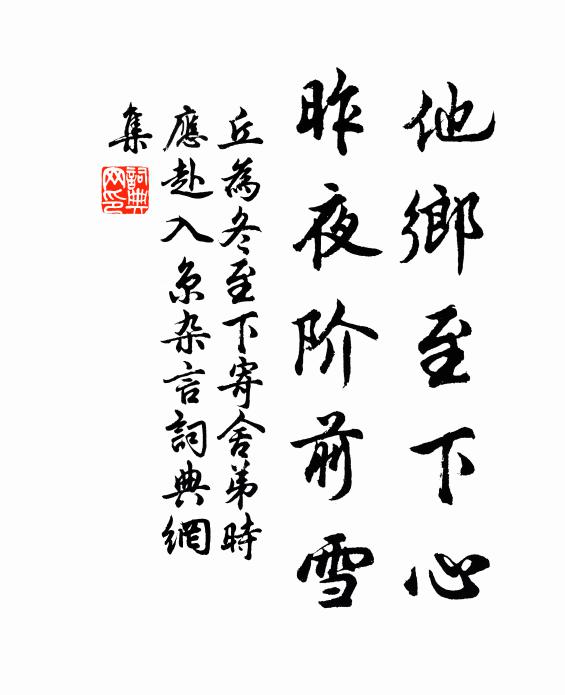 他鄉至下心
昨夜阶前雪
丘為冬至下寄舍弟時
應赴入京杂言詞典網
集
詞典
网印